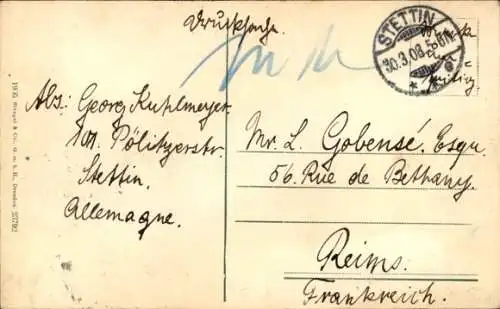 Drucksache.
STETTIN
30.3.08.5-6N.
* * e
Marke
Abs: Georg Kuhlmeyer.
101. Pölitzerstr.
Stettin.
Allemagne.
Mr. L. Gobensé. Esqu.
56. Rue de Bethany.
Reims.
Frankreich.
1905 Stengel & Co., G. m. b. H., Dresden 25792